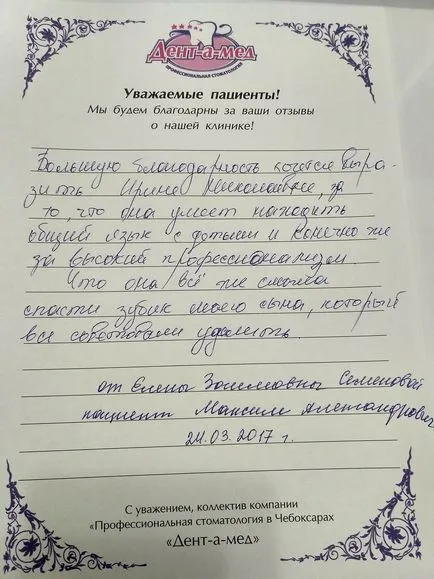 Дент-а-мед
ПРОФЕССИОНАЛЬНАЯ СТОМАТОЛОГИЯ
Уважаемые пациенты!
Мы будем благодарны за ваши отзывы
о нашей клинике!
Большую благодарность хочется выра-
зить Ирине Николаевне, за
то, что она умеет находить
общий язык с детьми и конечно же
за высокий профессионализм.
Что она всё же смогла
спасти зубик моего сына, который
все советовали удалить.
от Елены Семеновой
пациент Максим Александрович
24.03.2017 г.
С уважением, коллектив компании
«Профессиональная стоматология в Чебоксарах
«Дент-а-мед»